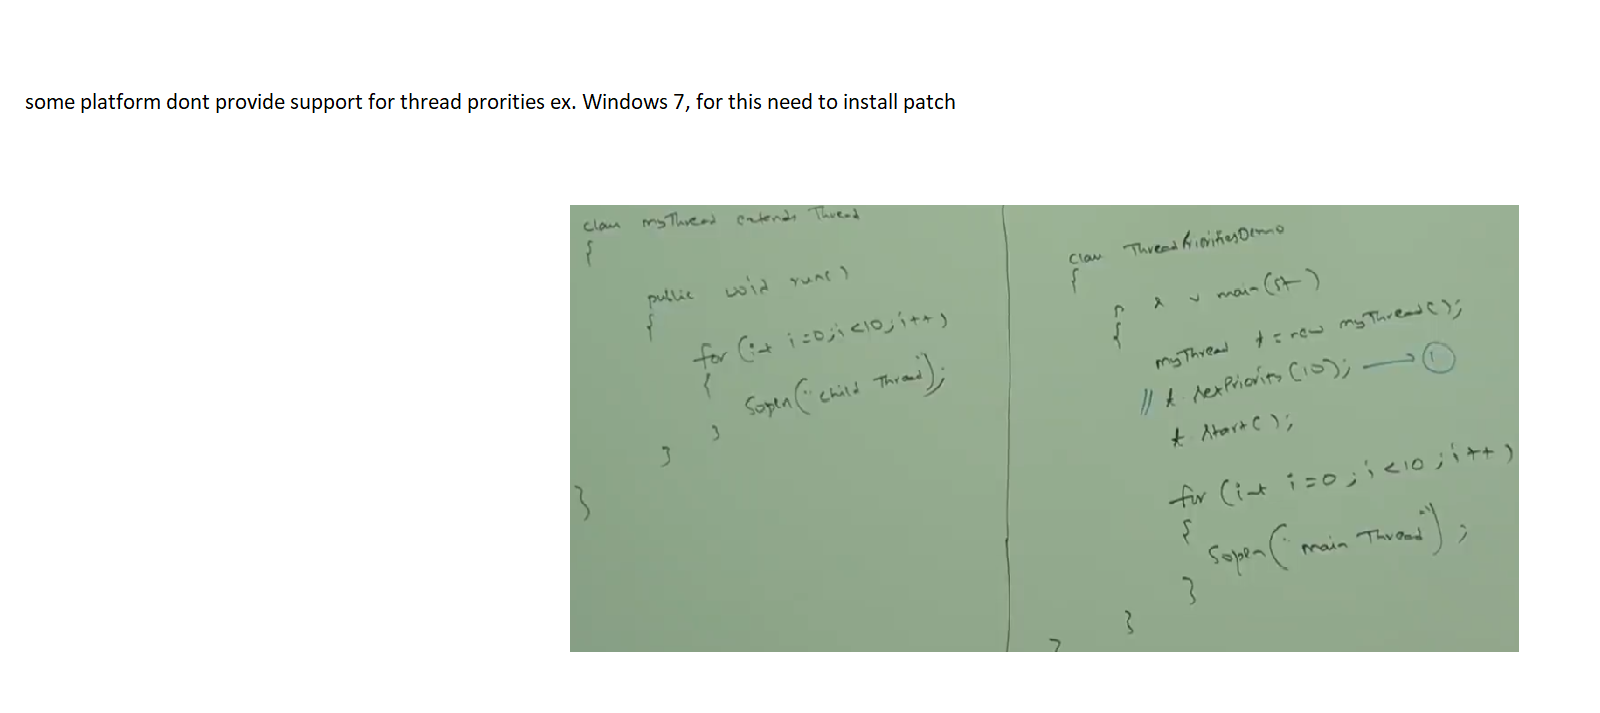 some platform dont provide support for thread prorities ex. Windows 7, for this need to install patch
class myThread extends Thread
{
public void run()
{
for (int i=0;i<10;i++)
{
Sopln("child Thread");
}
}
}
class ThreadPrioritiesDemo
{
p s v main(St-)
{
myThread t = new myThread();
// t. setPriority (10); → 1
t. start();
for (int i=0;i<10;i++)
{
Sopln("main Thread");
}
}
}